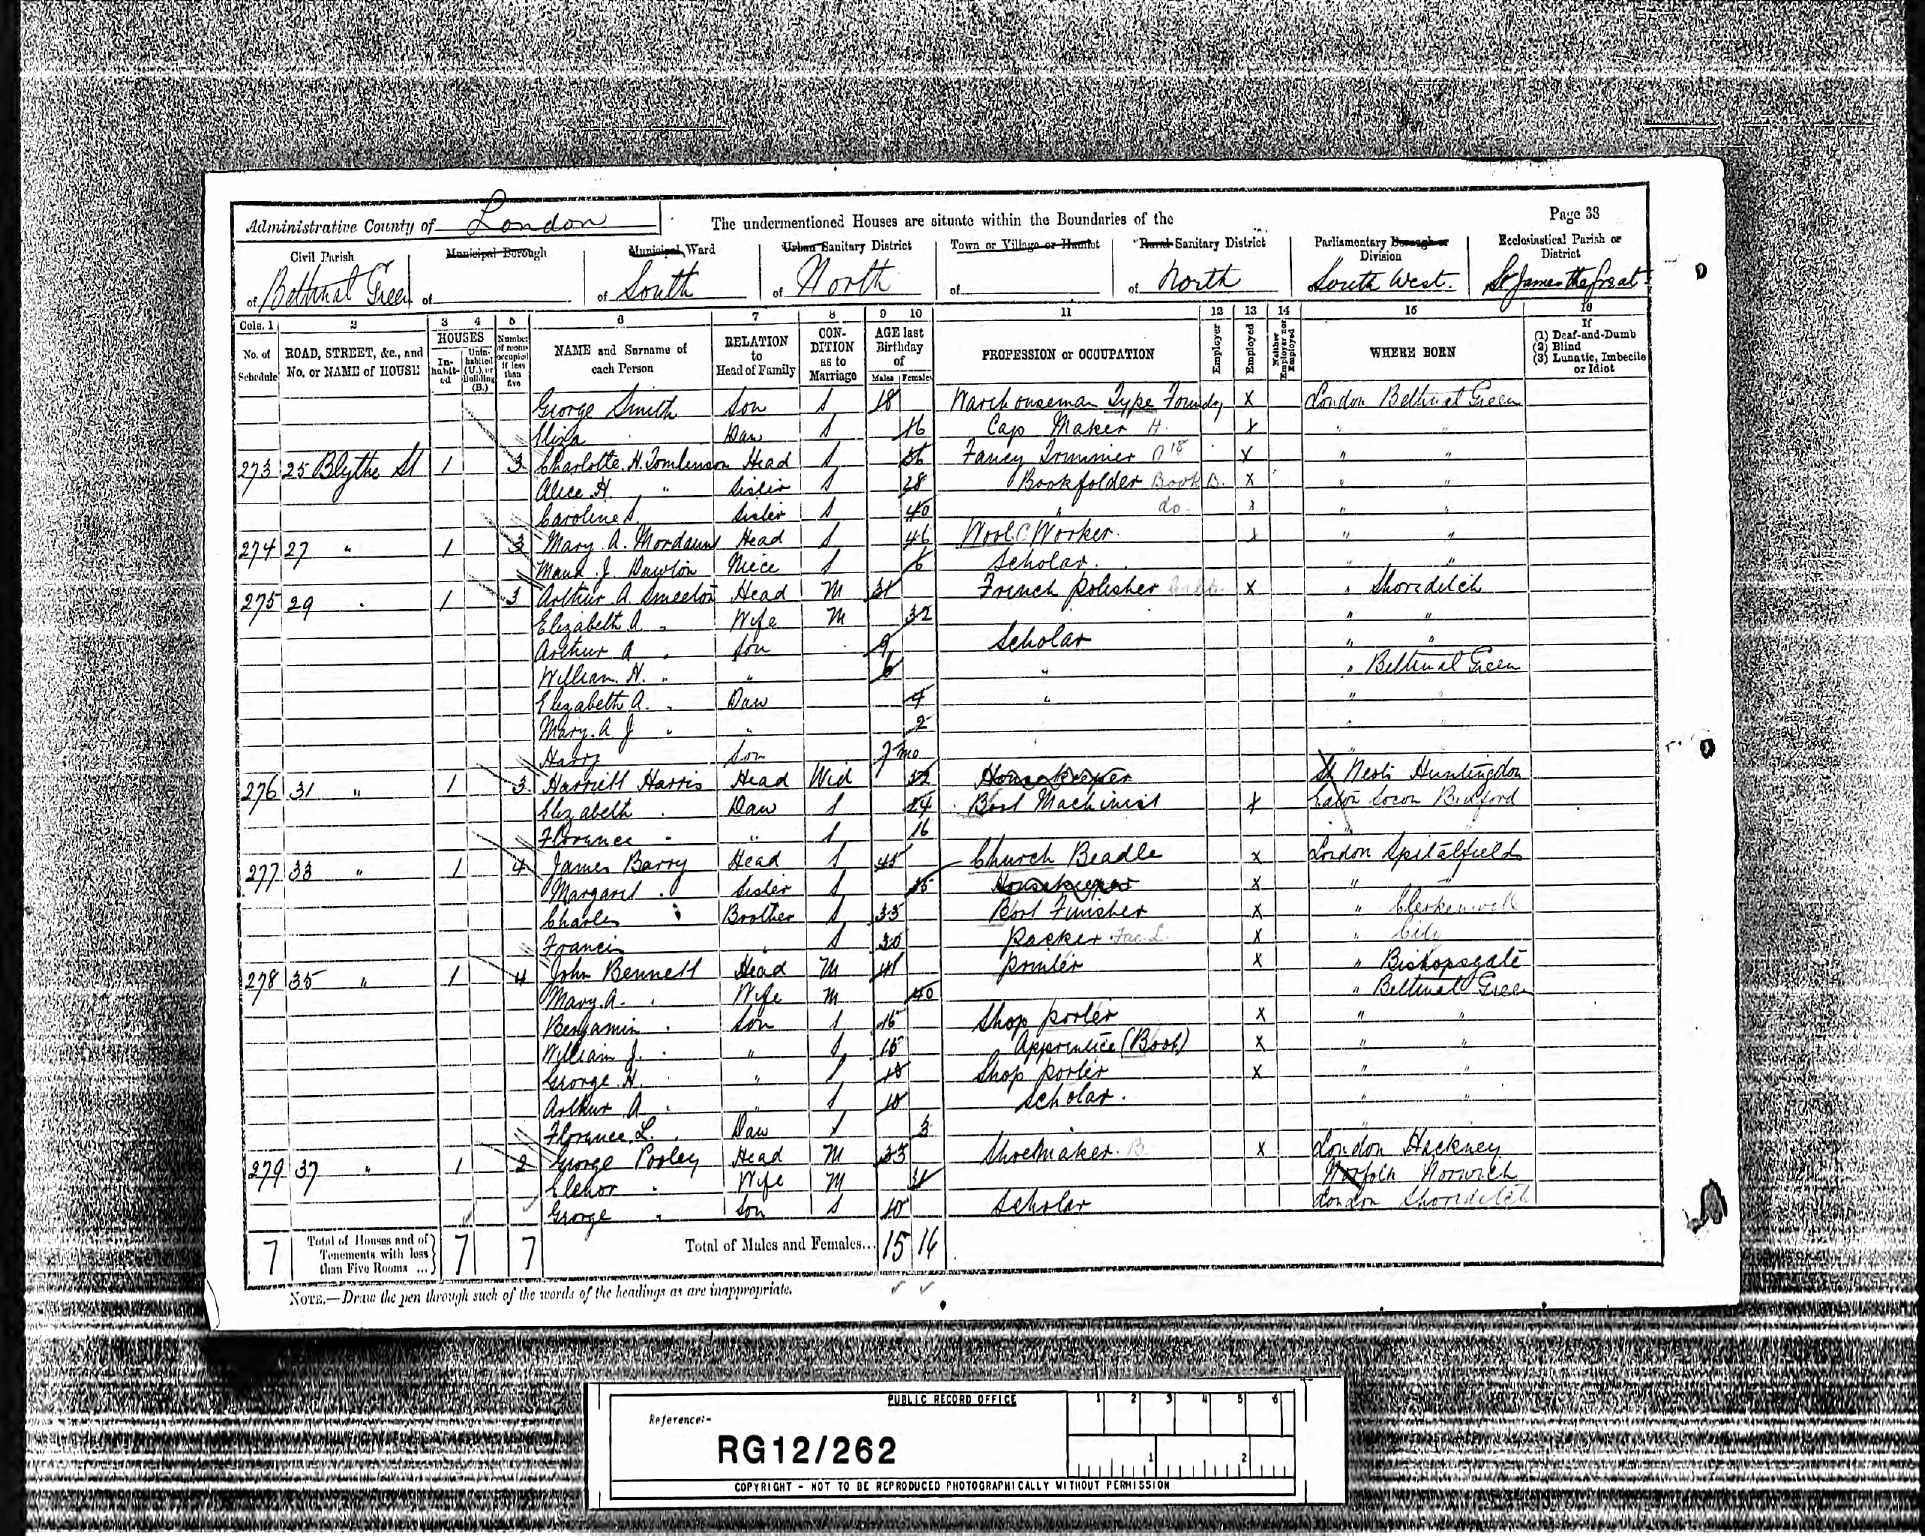 Administrative County of London
The undermentioned Houses are situate within the Boundaries of the
Page 38
Civil Parish of Bethnal Green
Municipal Borough of
Municipal Ward of South
Urban Sanitary District of North
Town or Village or Hamlet of
Rural Sanitary District of North
Parliamentary Borough or Division of South West.
Ecclesiastical Parish or District of St James the Great
Cols. 1 2 3 4 5 6 7 8 9 10 11 12 13 14 15 16
No. of Schedule
ROAD, STREET, &c., and No. or NAME of HOUSE
HOUSES
Inhabited
Uninhabited (U.), or Building (B.)
Number of rooms occupied if less than five
NAME and Surname of each Person
RELATION to Head of Family
CONDITION as to Marriage
AGE last Birthday of
Males Females
PROFESSION or OCCUPATION
Employer
Employed
Neither Employer nor Employed
WHERE BORN
If (1) Deaf-and-Dumb (2) Blind (3) Lunatic, Imbecile or Idiot
George Smith Son S 18 Warehouseman Type Foundry X London Bethnal Green
Eliza Daur S 16 Cap Maker H. X " "
273 25 Blythe St 1 3 Charlotte H. Tomlenson Head S Fancy Trimmer X " "
Alice H. " Sister S 28 Bookfolder Book B. X " "
Caroline S. Sister S 40 " do. X " "
274 27 " 1 3 Mary A. Mordaunt Head S 46 Wool Worker. X " "
Maud J. Dawton Niece S 6 Scholar. " "
275 29 " 1 3 Arthur A Smeeton Head M 31 French polisher X " Shoreditch
Elizabeth A " Wife M 32 " "
Arthur A " Son 9 Scholar " "
William H. " " 6 " " Bethnal Green
Elizabeth A. " Daur 4 " " "
Mary A J " " 2 " "
Harry Son 7 mo "
276 31 " 1 3 Harriett Harris Head Wid 52 Housekeeper St Neots Huntingdon
Elizabeth " Daur S 24 Boot Machinist X Eaton Socon Bedford
Florence " " S 16 " "
277 33 " 1 4 James Barry Head S 45 Church Beadle X London Spitalfields
Margaret " Sister S Housekeeper X " "
Charles " Brother S 33 Boot Finisher X " Clerkenwell
Francis " S 30 Packer X " City
278 35 " 1 4 John Bennett Head M 41 printer X " Bishopsgate
Mary A. " Wife M 40 " Bethnal Green
Benjamin " Son S 16 Shop porter X " "
William J. " " S 15 Apprentice (Book) X " "
George H. " " S Shop porter X " "
Arthur A " " S 10 Scholar. " "
Florence L. " Daur S 3 "
279 37 " 1 2 George Pooley Head M 33 Shoemaker B X London Hackney
Elenor " Wife M 31 Norfolk Norwich
George " Son S 10 Scholar London Shoreditch
7 Total of Houses and of Tenements with less than Five Rooms ... 7 7 Total of Males and Females... 15 16
NOTE.—Draw the pen through such of the words of the headings as are inappropriate.
PUBLIC RECORD OFFICE
1 2 3 4 5 6
Reference:-
RG12/262
1 2
COPYRIGHT - NOT TO BE REPRODUCED PHOTOGRAPHICALLY WITHOUT PERMISSION